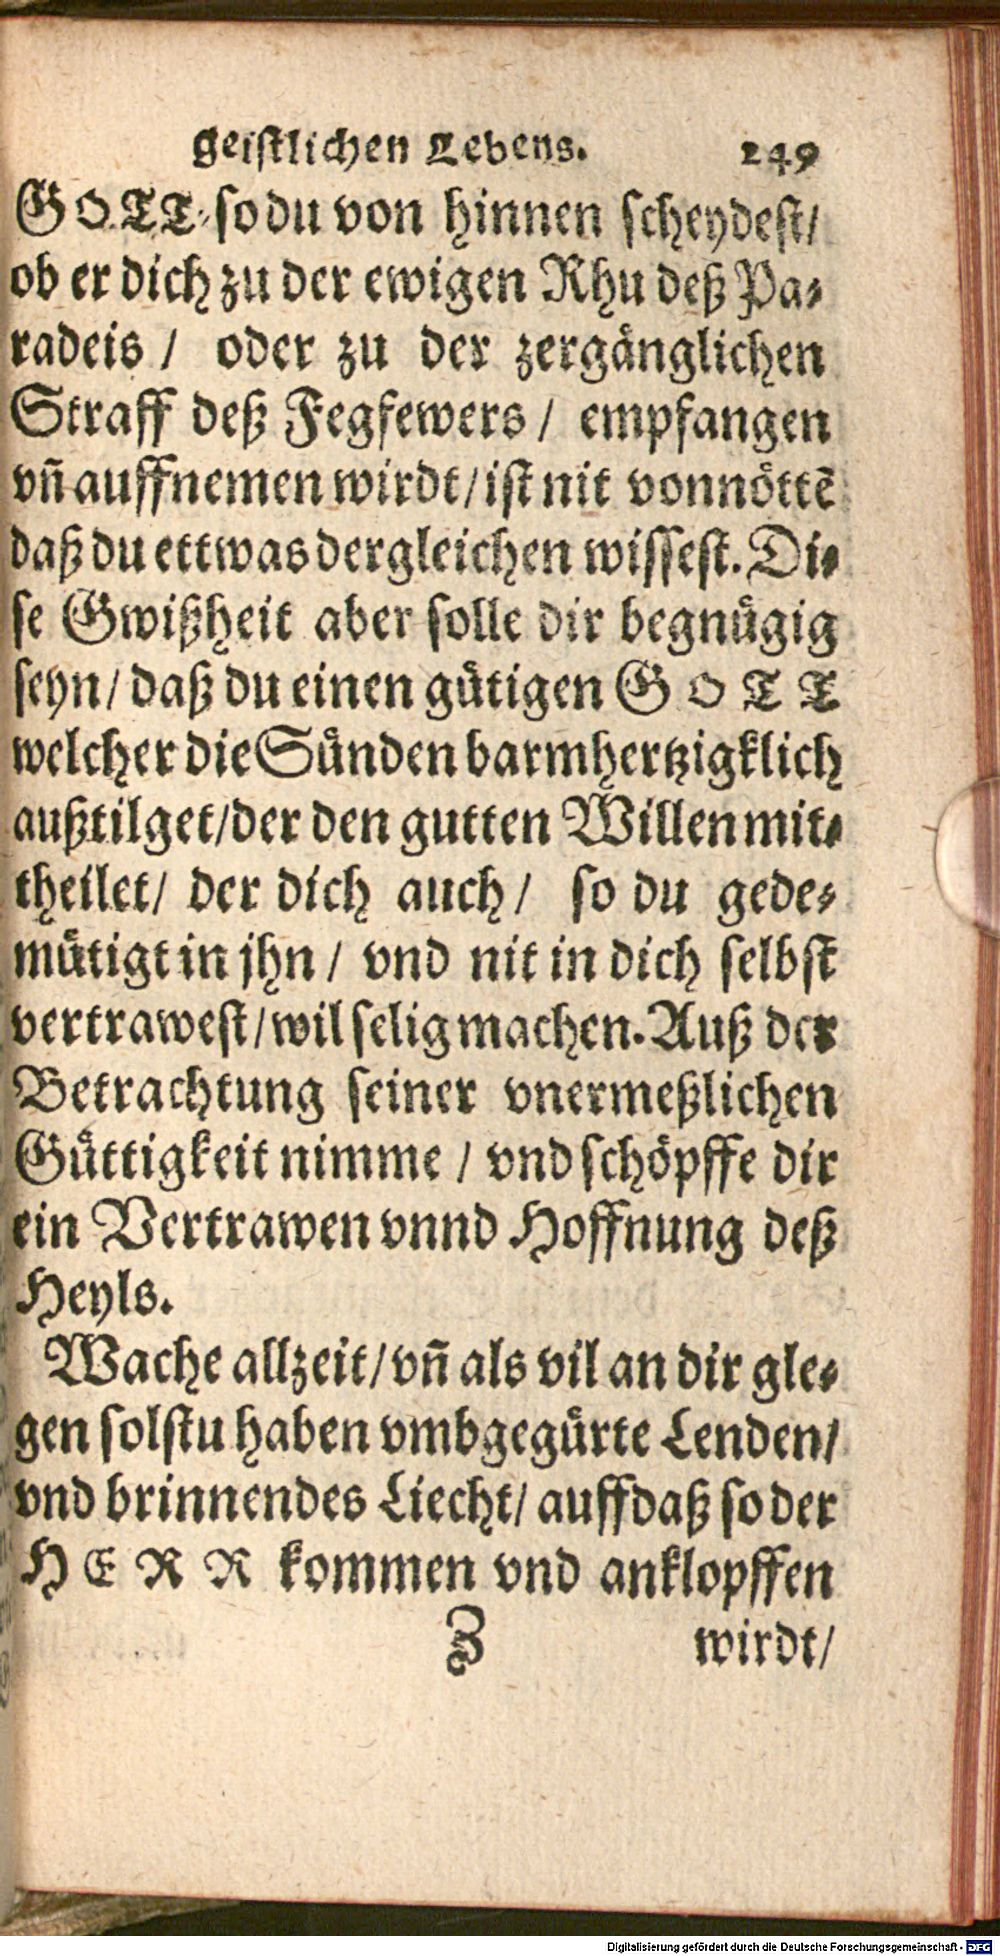 geistlichen Lebens. 249
GOTT so du von hinnen scheydest/
ob er dich zu der ewigen Rhu deß Pa-
radeis / oder zu der zergänglichen
Straff deß Fegfewers / empfangen
vñ auffnemen wirdt/ ist nit vonnöttẽ
daß du ettwas dergleichen wissest. Di-
se Gwißheit aber solle dir begnügig
seyn/ daß du einen gütigen GOTT
welcher die Sünden barmhertzigklich
außtilget/ der den gutten Willen mit-
theilet/ der dich auch/ so du gede-
mütigt in jhn / vnd nit in dich selbst
vertrawest/ wil selig machen. Auß der
Betrachtung seiner vnermeßlichen
Güttigkeit nimme / vnd schöpffe dir
ein Vertrawen vnnd Hoffnung deß
Heyls.
Wache allzeit/ vñ als vil an dir gle-
gen solstu haben vmbgegürte Lenden/
vnd brinnendes Liecht/ auffdaß so der
HERR kommen vnd anklopffen
Z wirdt/
Digitalisierung gefördert durch die Deutsche Forschungsgemeinschaft - DFG